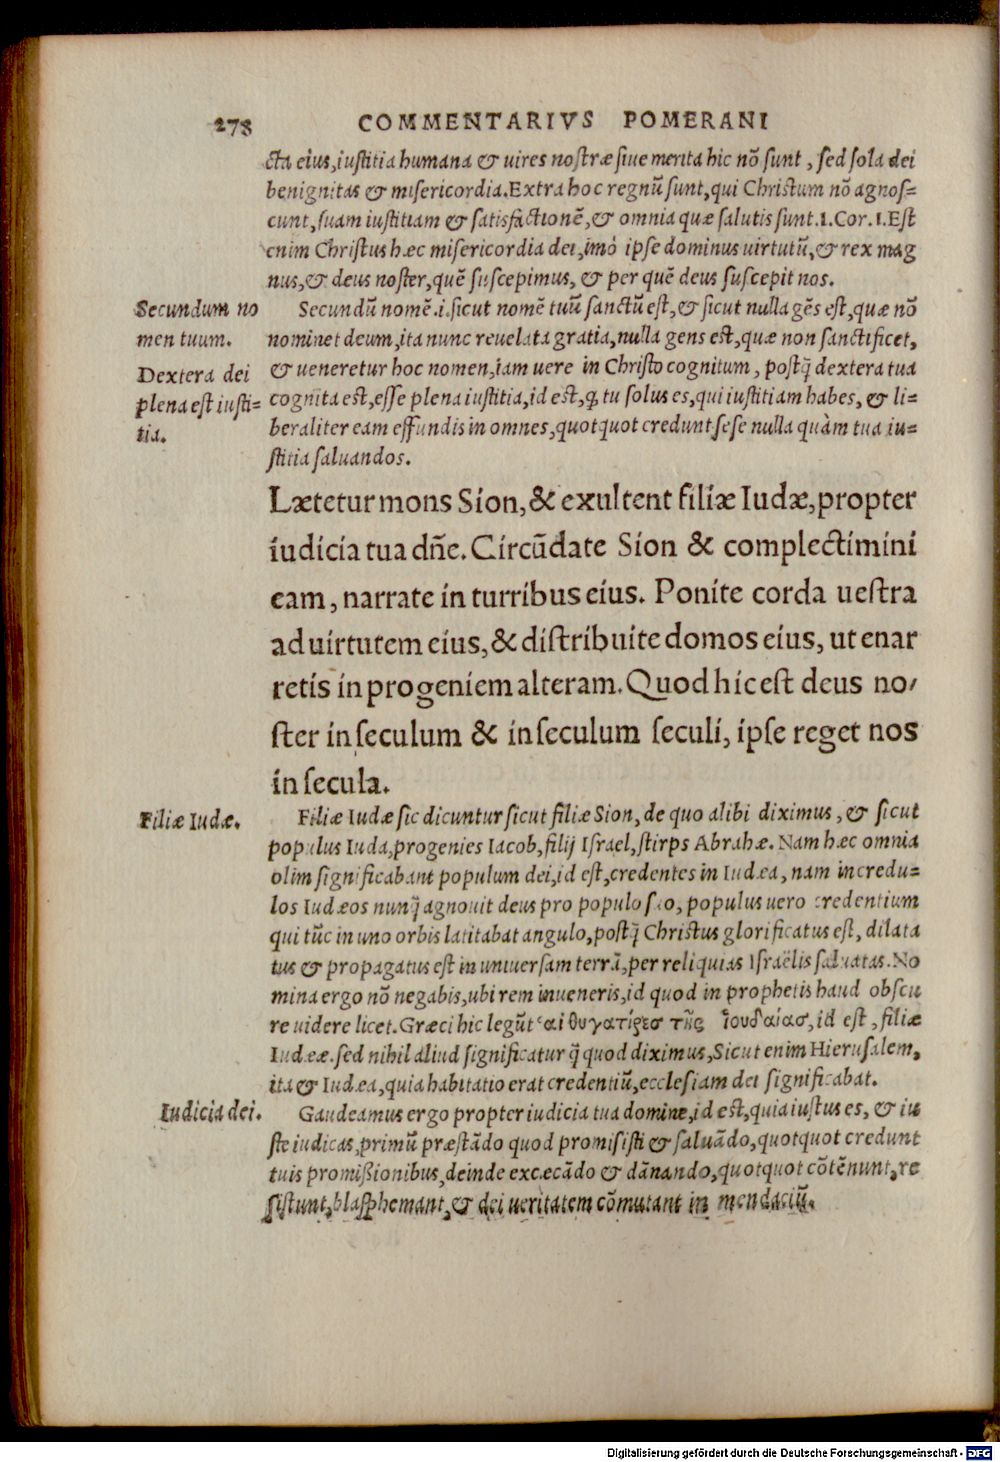 278 COMMENTARIVS POMERANI
cta eius, iustitia humana & uires nostræ siue merita hic nō sunt, sed sola dei
benignitas & misericordia. Extra hoc regnū sunt, qui Christum nō agnos=
cunt, suam iustitiam & satisfactionē, & omnia quæ salutis sunt. 1. Cor. 1. Est
enim Christus hæc misericordia dei, imò ipse dominus uirtutū, & rex mag
nus, & deus noster, quē suscepimus, & per quē deus suscepit nos.
Secundum no
men tuum.
Secundū nomē .i. sicut nomē tuū sanctū est, & sicut nulla gēs est, quæ nō
nominet deum, ita nunc reuelata gratia, nulla gens est, quæ non sanctificet,
Dextera dei
plena est iusti=
tia.
& ueneretur hoc nomen, iam uere in Christo cognitum, postq̄ dextera tua
cognita est, esse plena iustitia, id est, q̨ tu solus es, qui iustitiam habes, & li=
beraliter eam effundis in omnes, quotquot credunt sese nulla quàm tua iu=
stitia saluandos.
Lætetur mons Sion, & exultent filiæ Iudæ, propter
iudicia tua dñe. Circūdate Sion & complectimini
eam, narrate in turribus eius. Ponite corda uestra
ad uirtutem eius, & distribuite domos eius, ut enar
retis in progeniem alteram. Quod hic est deus no/
ster in seculum & in seculum seculi, ipse reget nos
in secula.
Filiæ Iudæ.
Filiæ Iudæ sic dicuntur sicut filiæ Sion, de quo alibi diximus, & sicut
populus Iuda, progenies Iacob, filij Israel, stirps Abrahæ. Nam hæc omnia
olim significabant populum dei, id est, credentes in Iudæa, nam incredu=
los Iudæos nunq̄ agnouit deus pro populo suo, populus uero credentium
qui tūc in uno orbis latitabat angulo, postq̄ Christus glorificatus est, dilata
tus & propagatus est in uniuersam terrā, per reliquias Israëlis saluatas. No
mina ergo nō negabis, ubi rem inueneris, id quod in prophetis haud obscu
re uidere licet. Græci hic legūt αἱ θυγατέρεσ τῆς ἰουδαίασ, id est, filiæ
Iudææ. sed nihil aliud significatur q̄ quod diximus, Sicut enim Hierusalem,
ita & Iudæa, quia habitatio erat credentiū, ecclesiam dei significabat.
Iudicia dei.
Gaudeamus ergo propter iudicia tua domine, id est, quia iustus es, & iu
ste iudicas, primū præstādo quod promisisti & saluādo, quotquot credunt
tuis promißionibus, deinde excæcādo & dānando, quotquot cōtēnunt, re
sistunt, blasphemant, & dei ueritatem cōmutant in mendaciū.
Digitalisierung gefördert durch die Deutsche Forschungsgemeinschaft - DFG